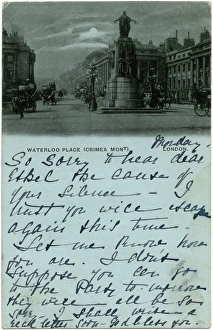 WATERLOO PLACE (CRIMEA MONT). LONDON.
Monday
So sorry to hear dear
Ethel the cause of
your silence — I
trust you will escape
again this time.
Let me know how
you are. I don't
suppose you can go
to the Party, to-morrow
they will all be so
sorry. I shall write a
letter soon — God bless you.